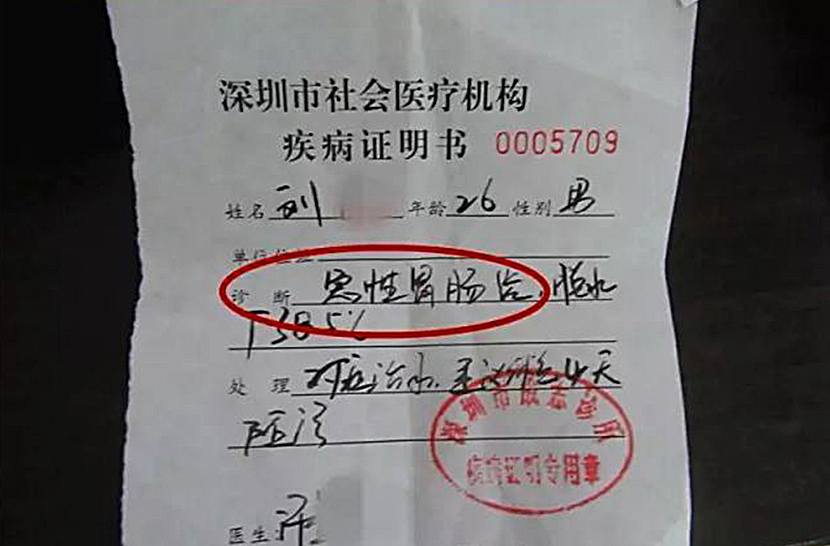 深圳市社会医疗机构
疾病证明书 0005709
姓名 刘 年龄 26 性别 男
单行住址
诊断 急性胃肠炎、脱水
T38.5℃
处理 对症治疗、建议休息4天
随诊
深圳市 诊所
疾病证明专用章
医生 许